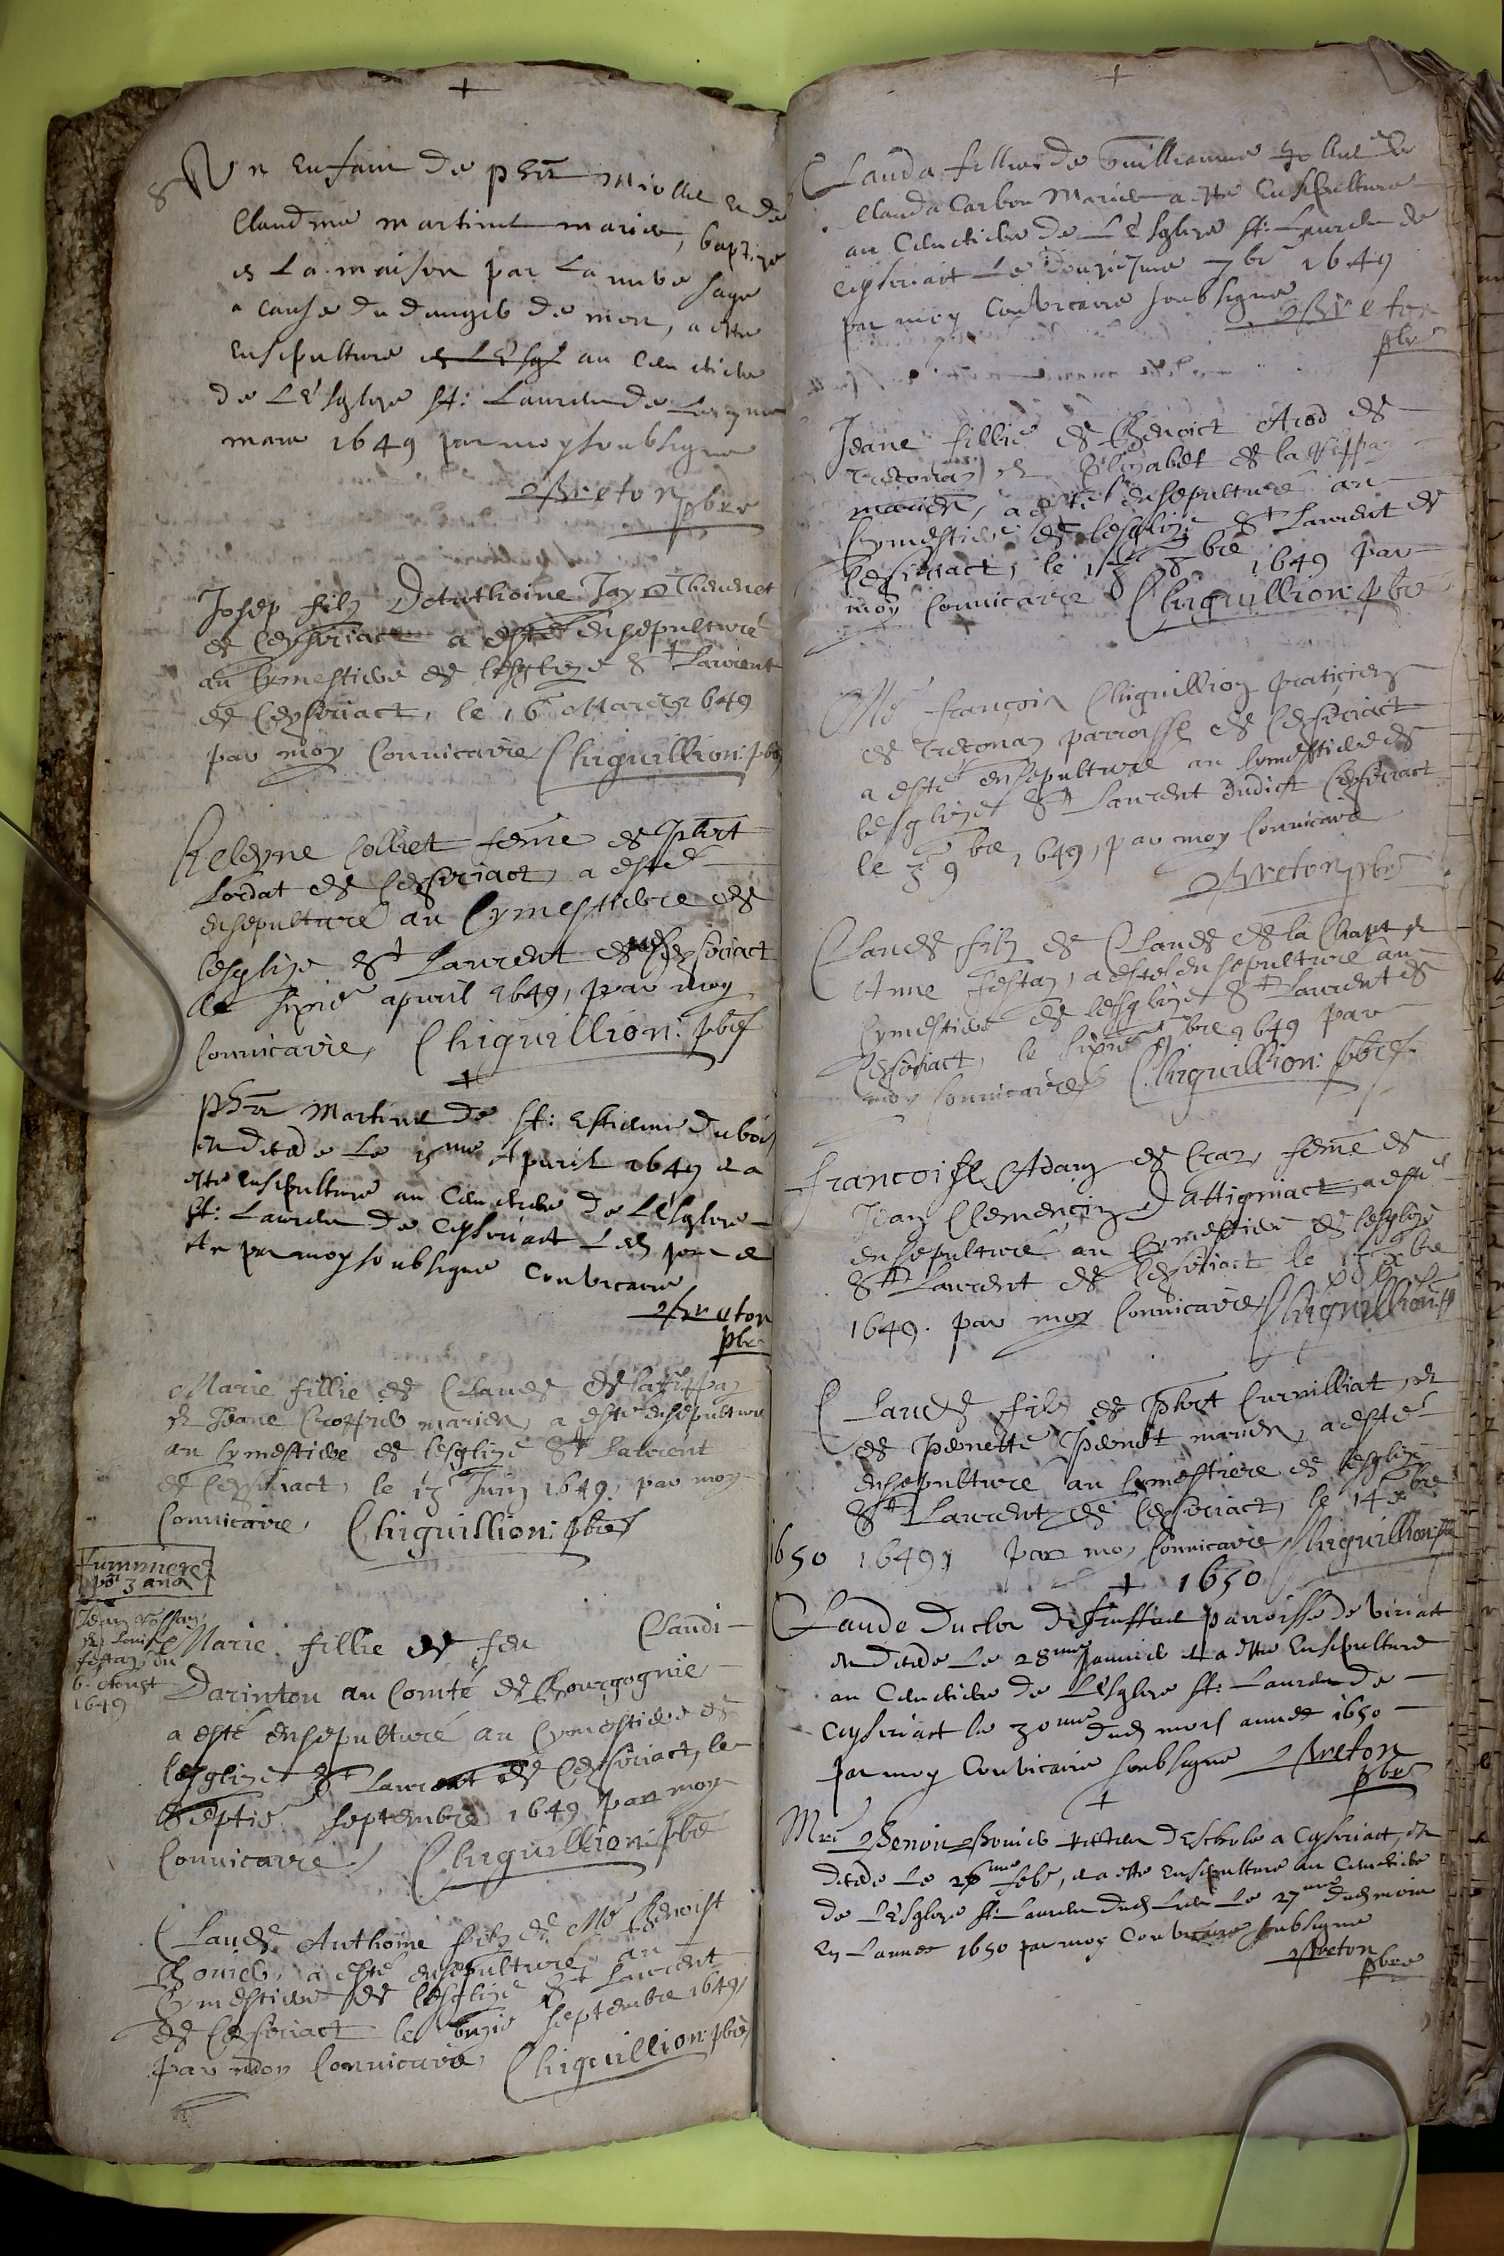 +
Un enfant de phrt Miollet et de
Claudine Martinet mariés, baptizé
en La maison par La mere sage
a cause du danger de mort, a esté
ensepulturé en L'Esgl au Cimetiere
de L'Esglyse St: Laurent de
mars 1649 par moy soubsigné
Breton pbre
Josep filz Detnthoine Jay Thevenet
de Ceyseriact a esté ensepulturé
au Cymestiere de lesglize St Laurent
de Ceyseriact, le 16 Mars 1649
par moy Convicaire Chiguillion: pbre
Colliet feme de Phrt
Lordat de Ceyseriact, a esté
ensepulturé au Cymestiere de
lesglize St Laurent de Ceyseriact
le sixie apuril 1649, par moy
Convicaire, Chiguillion: pbre
+
phrt Martinet de St: Estienne du boi
est decedé Le me Apuril 1649 et a
esté ensepulturé au Cimetiere de L'Esglyse
St: Laurent de Ceyseriact
par moy soubsigné Convicaire
Breton
pbre
Marie fillie de Claude de la Tippaz
et Jeane mariés, a esté ensepulturé
au Cymestiere de lesglize St Laurent
de Ceyseriact, le 13 Juin 1649, par moy
Convicaire, Chiguillion: pbre
por 3 ans
Jean
et
festaz du
6. Aoust
1649
Marie fillie de feu Claudi
Darinton au Comté de Bourgognie
a esté ensepulturé au Cymestiere de
lesglize St Laurent de Ceyseriact, le
Septie septembre 1649 par moy
Convicaire, Chiguillion: pbre
Claude Anthoine filz de Mre Benoist
Bonier, a esté ensepulturé au
Cymestiere de lesglize St Laurent
de Ceyseriact le unzie septembre 1649,
par moy Convicaire, Chiguillion: pbre
+
Clauda fillie de Guillaume et de
Clauda Carbon Mariés a esté Ensepulturé
au Cimetiere de L'Esglyse St: Laurent de
Ceyseriact Le douziesme 7bre 1649
par moy Convicaire soubsigné Breton
pbre
Jeane fillie de Benoict Arod de
Tretonaz et Elizabet de la Tippaz
mariés, a esté ensepulturé au
Cymestiere de lesglize St Laurent de
Ceyseriact, le 8bre 1649 par
moy Convicaire Chiguillion: pbre
Mre François Chiguillion praticien
de Tretonaz parroisse de Ceyseriact
a esté ensepulturé au Cymestiere de
lesglize St Laurent dudict Ceyseriact
le 3 9bre 1649, par moy Convicaire
Breton pbre
Claude filz de Claude de la Chapt et
Anne festaz, a esté ensepulturé au
Cymestiere de lesglize St Laurent de
Ceyseriact, le sixie bre 1649 par
moy Convicaire Chiguillion: pbre
Francoise Adam de Craz, feme de
Jean Clemencin Dattigniact, a esté
ensepulturé au Cymestiere de lesglize
St Laurent de Ceyseriact le xbre
1649. par moy Convicaire Chiguillion: p
Claude filz de Phrt Curnilliat, et
de Pernette Pernet mariés, a esté
ensepulturé au Cymestiere de lesglize
St Laurent de Ceyseriact, le 14 xbre
1650 1649, par moy Convicaire Chiguillion: pbre
+ 1650
Claude Duclos de parroisse de Viriact
est decedé Le 28me Januier et a esté Ensepulturé
au Cimetiere de L'Esglyse St: Laurent de
Ceyseriact le 30me dud mois année 1650
par moy Convicaire soubsigné Breton
pbre
+
Mre Benoist Bonier d'Eschole a Ceyseriact, est
decedé Le 26me feb, et a esté ensepulturé au Cimetiere
de L'Esglyse St: Laurent dud Lieu Le 27me dud mois
En L'année 1650 par moy Convicaire soubsigné
Breton
pbre